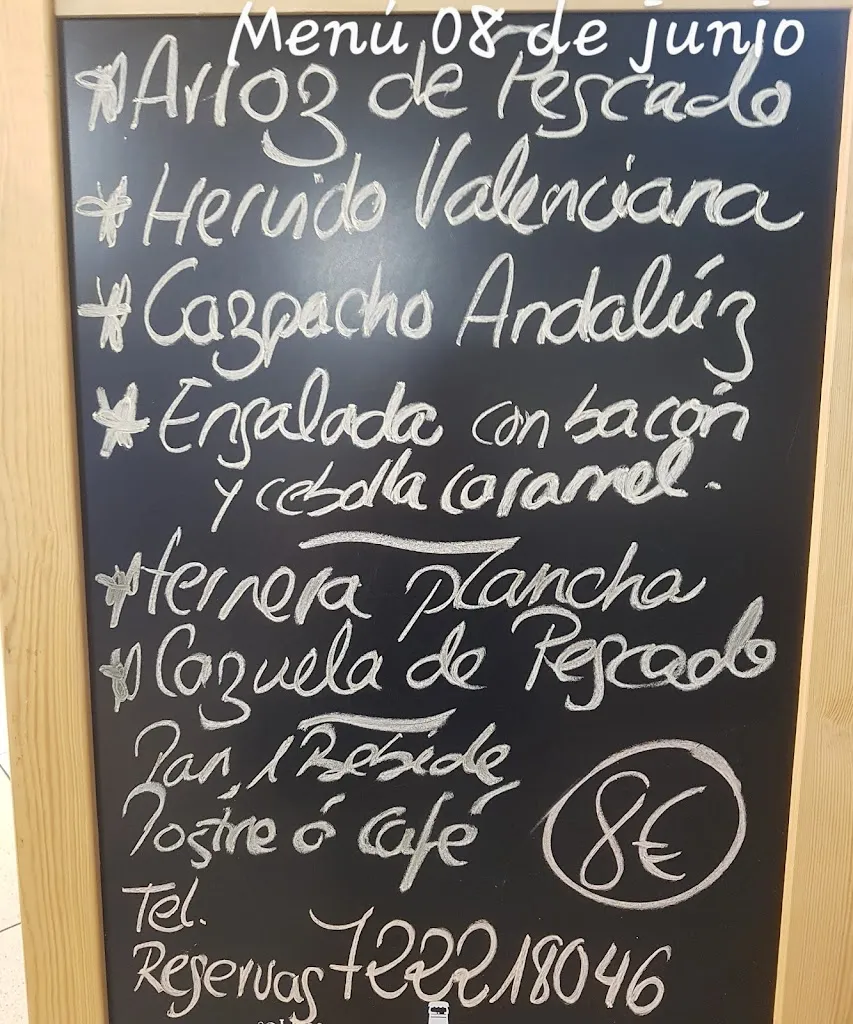 Menú 08 de junio
* Arroz de Pescado
* Hervido Valenciana
* Gazpacho Andalúz
* Ensalada con bacón
y cebolla caramel.
* ternera plancha
* Cazuela de Pescado
Pan, 1 Bebide
Postre ó café
8€
Tel.
Reservas 722218046